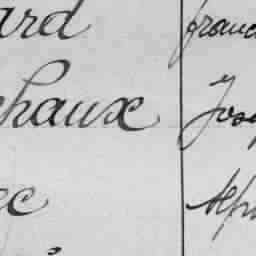 ard franc
chaux Jos
ec Alph